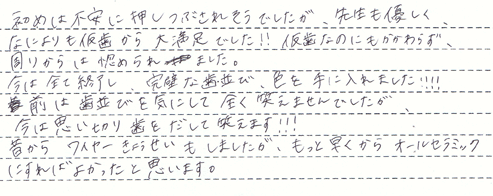 初めは不安に押しつぶされそうでしたが、先生も優しく、
なによりも仮歯から大満足でした!! 仮歯なのにもかかわらず、
周りからは認められました。
今は全て終了し、完璧な歯並び、色を手に入れました!!!!
前は歯並びを気にして全く笑えませんでしたが、
今は思い切り歯をだして笑えます!!!
昔からワイヤーきょうせいもしましたが、もっと早くからオールセラミック
にすればよかったと思います。